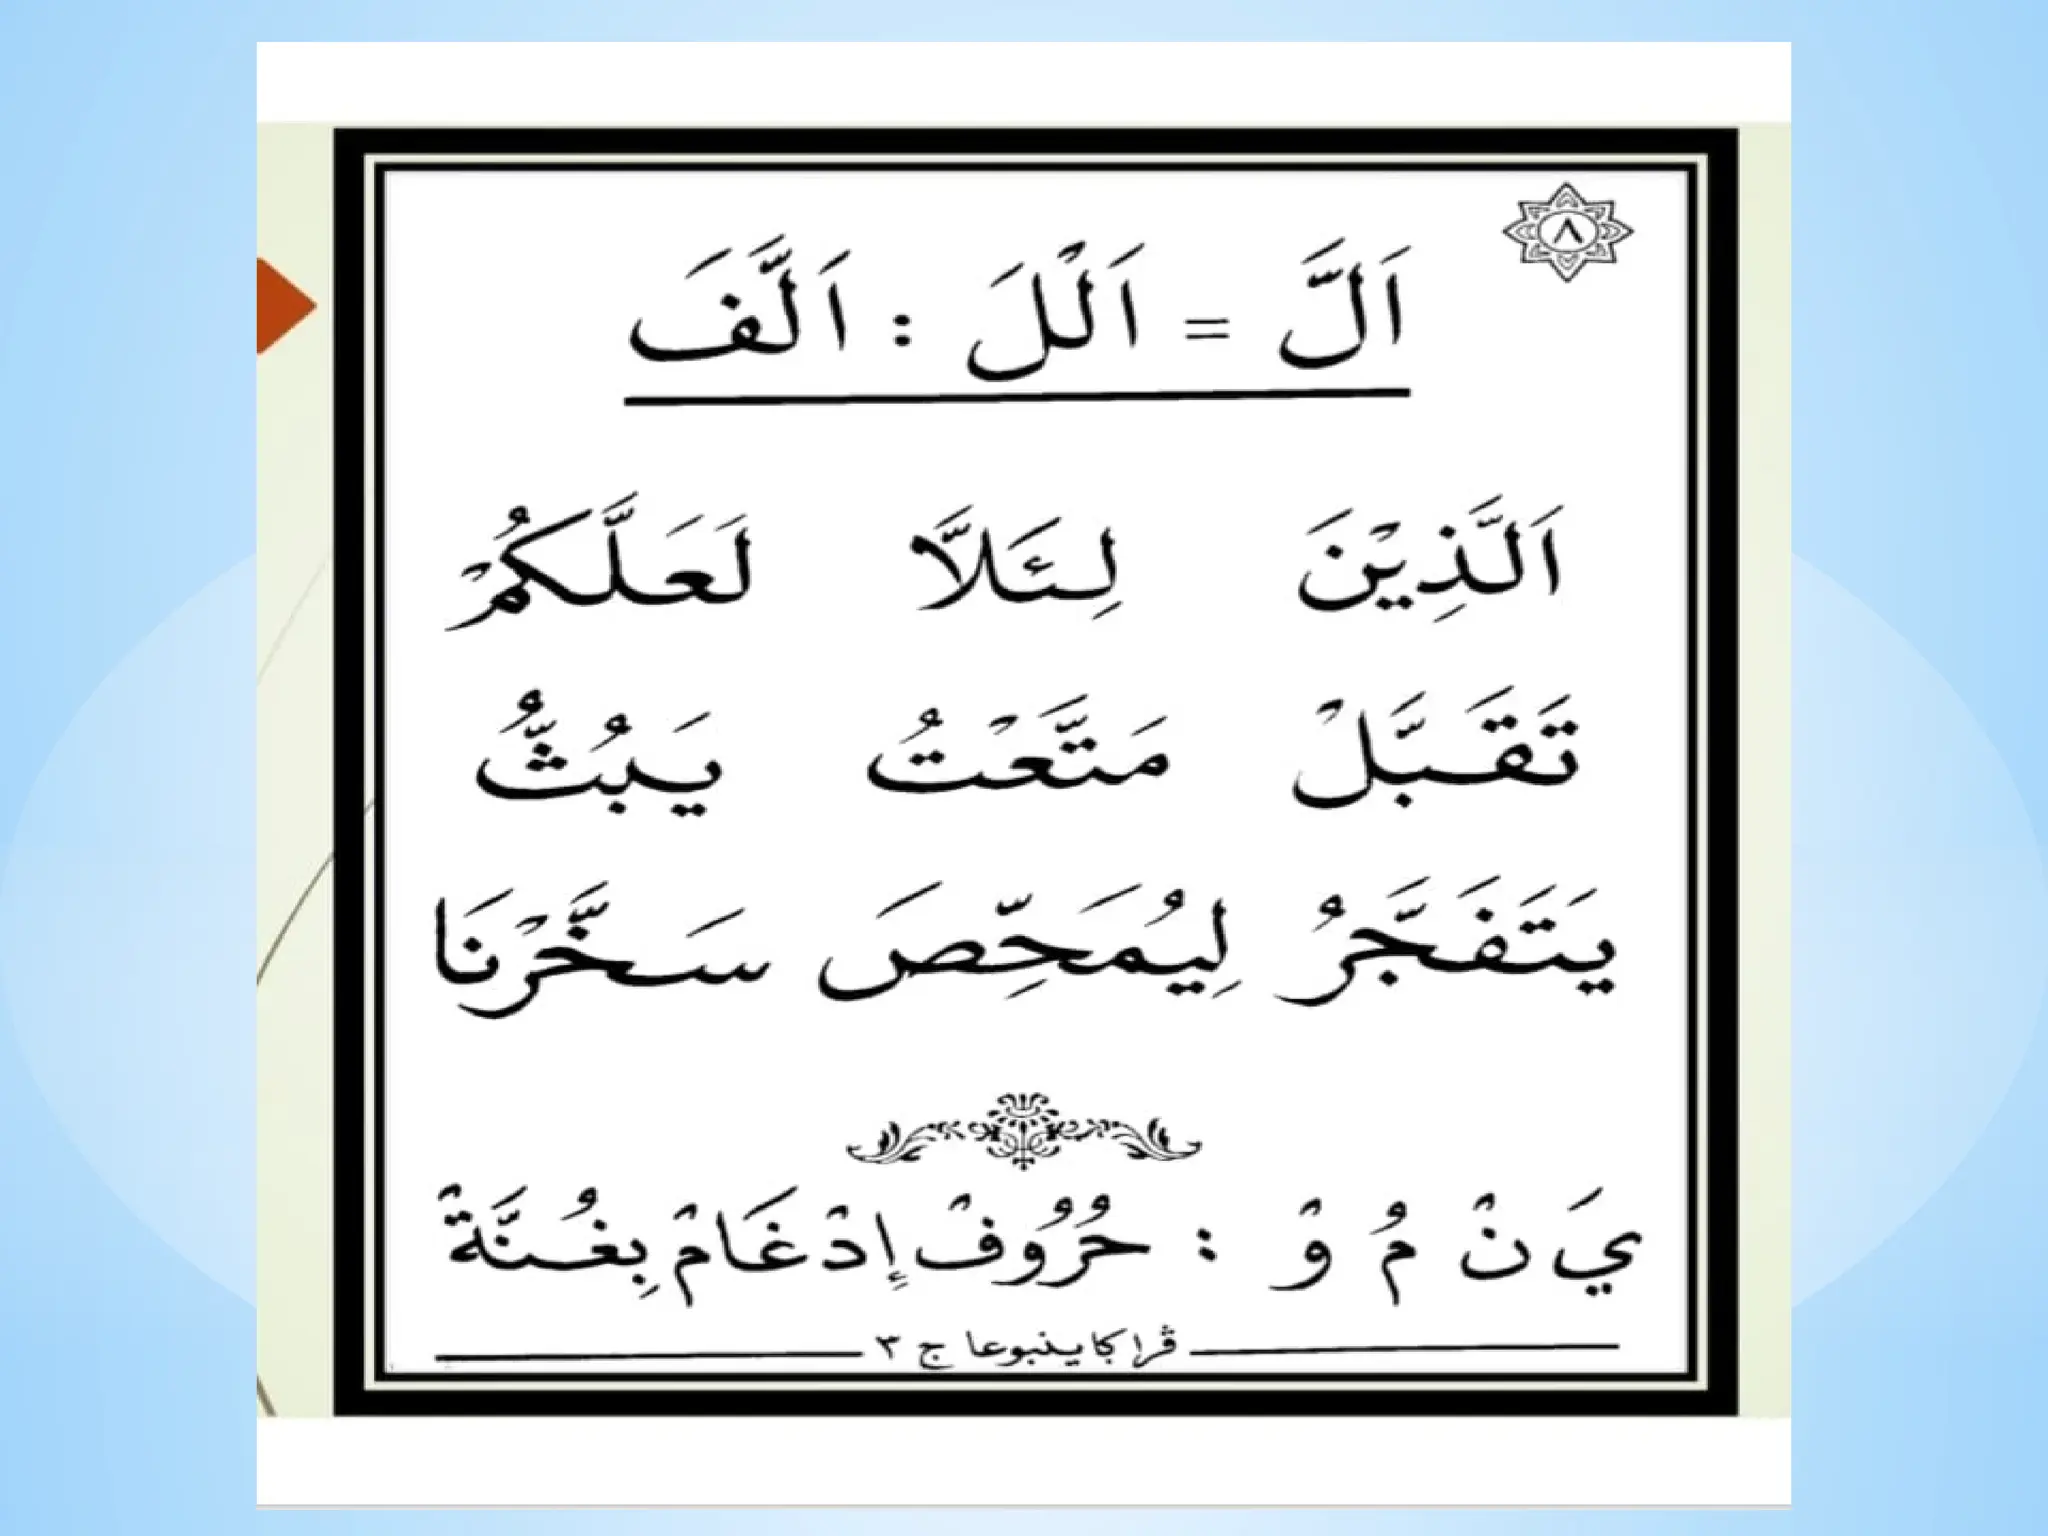 ٨
اَلَّ = اَلْلَ : اَلَّفَ
اَلَّذِيْنَ لِئَلاَّ لَعَلَّكُمْ
تَقَبَّلْ مَتَّعْتُ يَبُثُّ
يَتَفَجَّرُ لِيُمَحِّصَ سَخَّرْنَا
يَ نْ مُ وْ : حُرُوُفْ إِدْغَامْ بِغُنَّةْ
ڤراكاينبوعا ج ٣